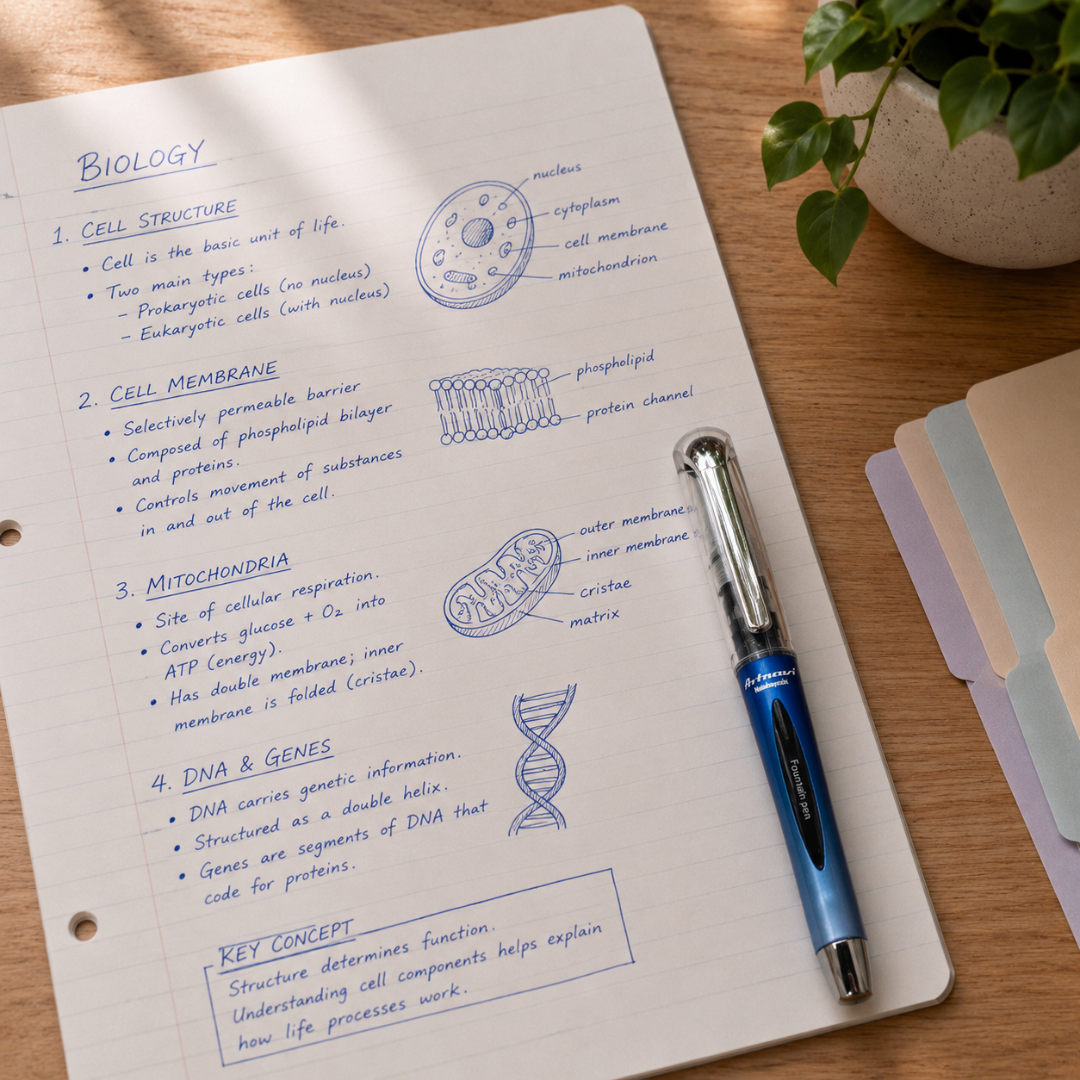 BIOLOGY
1. CELL STRUCTURE
• Cell is the basic unit of life.
• Two main types:
– Prokaryotic cells (no nucleus)
– Eukaryotic cells (with nucleus)
nucleus
cytoplasm
cell membrane
mitochondrion
2. CELL MEMBRANE
• Selectively permeable barrier
• Composed of phospholipid bilayer
and proteins.
• Controls movement of substances
in and out of the cell.
phospholipid
protein channel
3. MITOCHONDRIA
• Site of cellular respiration.
• Converts glucose + O₂ into
ATP (energy).
• Has double membrane; inner
membrane is folded (cristae).
outer membrane
inner membrane
cristae
matrix
4. DNA & GENES
• DNA carries genetic information.
• Structured as a double helix.
• Genes are segments of DNA that
code for proteins.
KEY CONCEPT
Structure determines function.
Understanding cell components helps explain
how life processes work.
Artnavi
Fountain pen